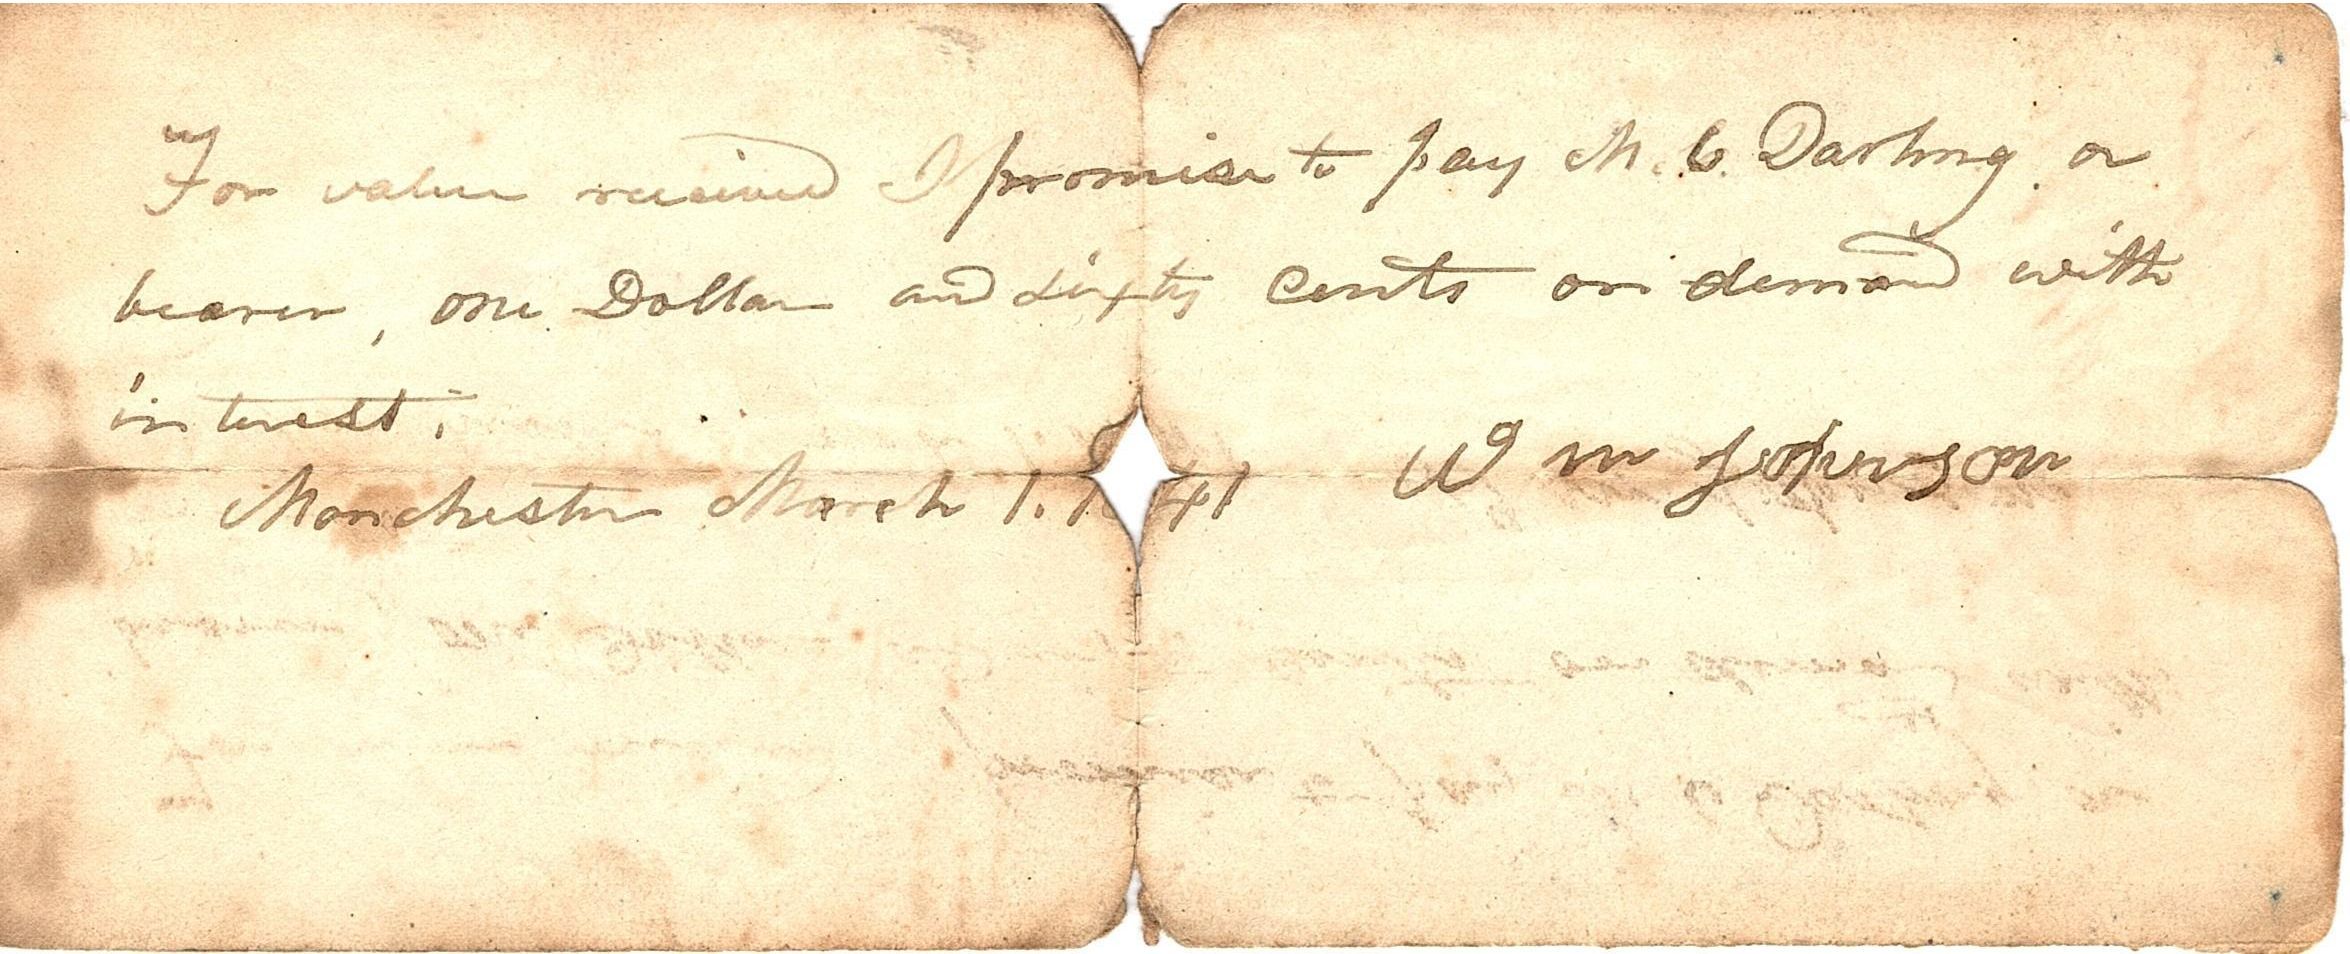 For value received I promise to pay M. C. Darling or
bearer, one Dollar and sixty cents on demand with
interest.
Manchester March 1. 1841
Wm Johnson